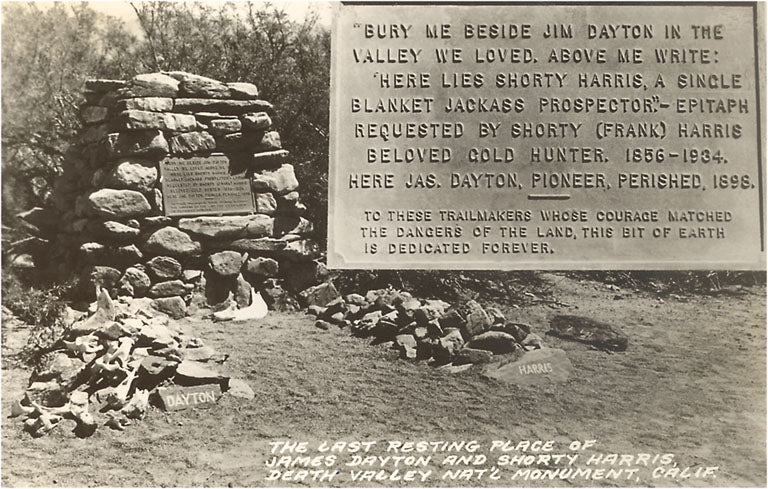 "BURY ME BESIDE JIM DAYTON IN THE
VALLEY WE LOVED. ABOVE ME WRITE:
'HERE LIES SHORTY HARRIS, A SINGLE
BLANKET JACKASS PROSPECTOR'"-EPITAPH
REQUESTED BY SHORTY (FRANK) HARRIS
BELOVED GOLD HUNTER. 1856-1934.
HERE JAS. DAYTON, PIONEER, PERISHED, 1898.
TO THESE TRAILMAKERS WHOSE COURAGE MATCHED
THE DANGERS OF THE LAND, THIS BIT OF EARTH
IS DEDICATED FOREVER.
DAYTON
HARRIS
THE LAST RESTING PLACE OF
JAMES DAYTON AND SHORTY HARRIS,
DEATH VALLEY NAT'L MONUMENT, CALIF.